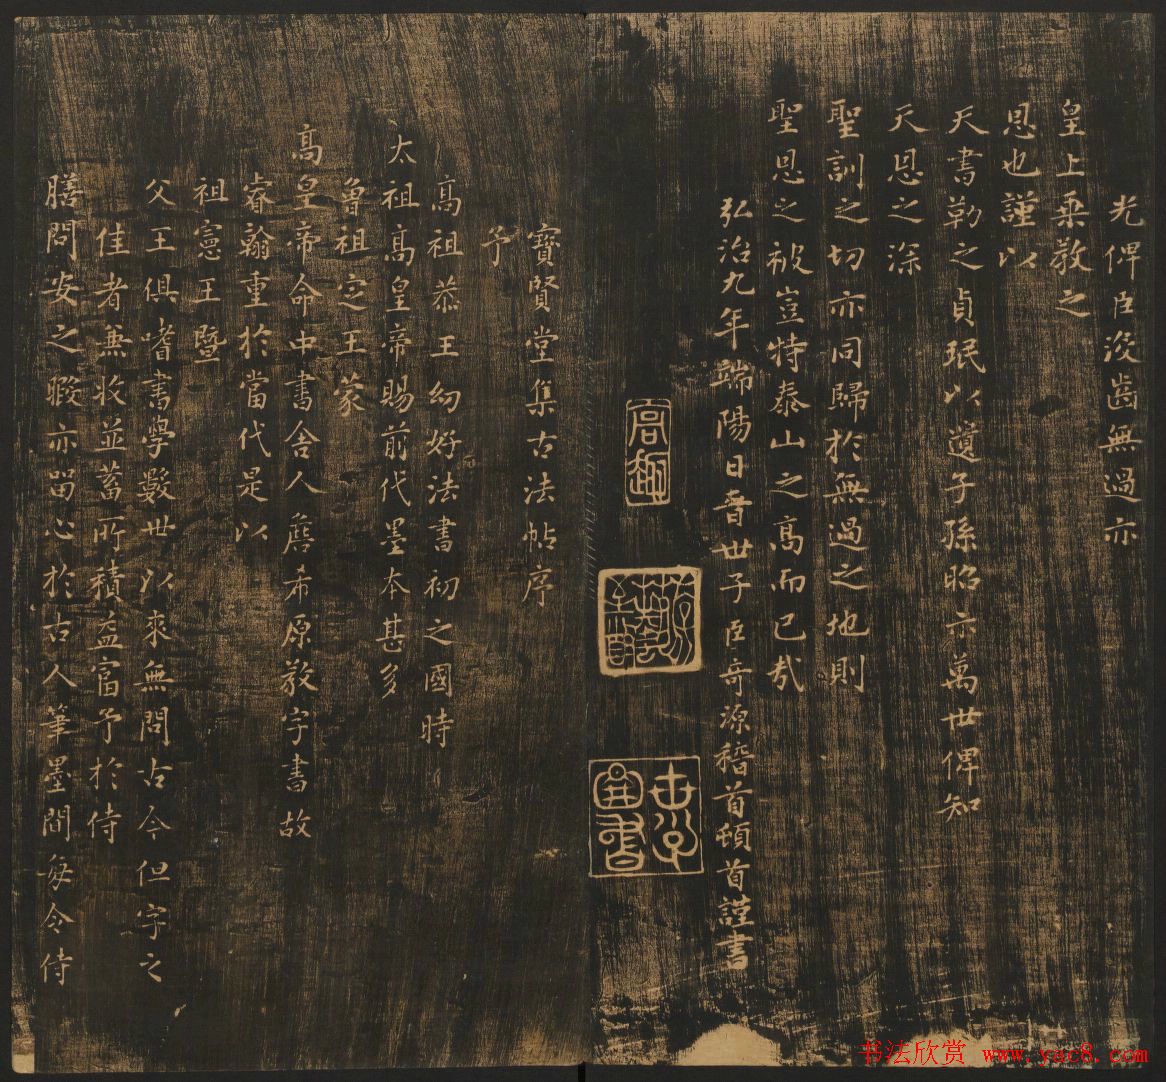 光俾臣沒齒無過亦
皇上乘敎之
恩也謹以
天書勒之貞珉以遺子孫昭示萬世俾知
天恩之深
聖訓之切亦同歸於無過之地則
聖恩之被豈特泰山之高而已哉
弘治九年端陽日晉世子臣奇源稽首頓首謹書
世子
圖書
寶賢堂集古法帖序
予
高祖恭王幼好法書初之國時
太祖高皇帝賜前代墨本甚多
曾祖定王蒙
高皇帝命中書舍人詹希原敎字書故
睿翰重於當代是以
祖憲王暨
父王俱嗜書學數世以來無問古今但字之
佳者兼收並蓄所積益富予於侍
膳問安之暇亦留心於古人筆墨間每令侍
书法欣赏 www.yac8.com